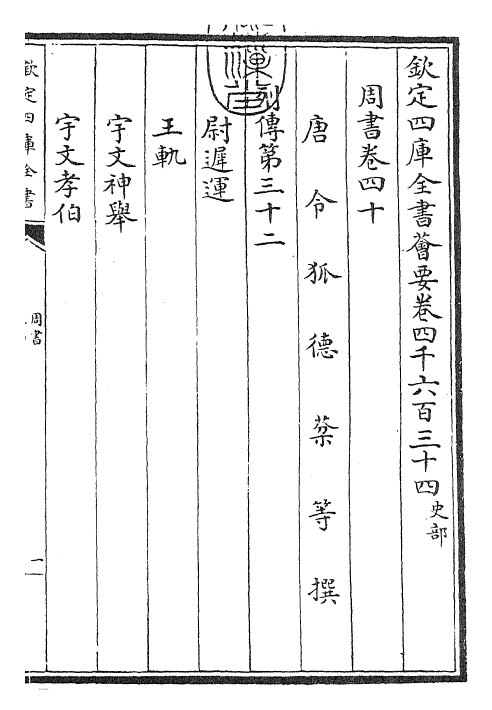 欽定四庫全書薈要卷四千六百三十四 史部
周書卷四十
唐令狐德棻等撰
列傳第三十二
尉遲運
王軌
宇文神舉
宇文孝伯
欽定四庫全書
周書